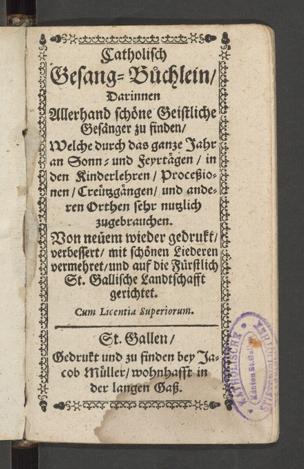 Catholisch
Gesang-Büchlein/
Darinnen
Allerhand schöne Geistliche
Gesänger zu finden/
Welche durch das gantze Jahr
an Sonn- und Feyrtägen / in
den Kinderlehren / Proceßio-
nen / Creützgängen / und ande-
ren Orthen sehr nutzlich
zugebrauchen.
Von neüem wieder gedrukt/
verbessert/ mit schönen Liederen
vermehret/ und auf die Fürstlich
St. Gallische Landtschafft
gerichtet.
Cum Licentia Superiorum.
St. Gallen/
Gedrukt und zu finden bey Ja-
cob Müller/ wohnhafft in
der langen Gaß.
KATHOLISCHE